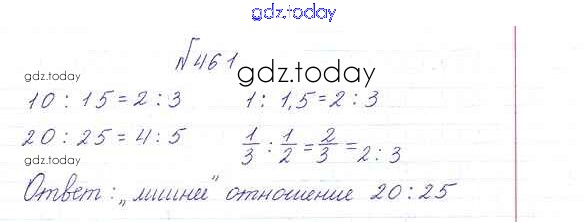 gdz.today
№461
gdz.today
gdz.today
10 : 15 = 2 : 3 1 : 1,5 = 2 : 3
20 : 25 = 4 : 5 1/3 : 1/2 = 2/3 = 2 : 3
gdz.today
Ответ: „лишнее" отношение 20 : 25